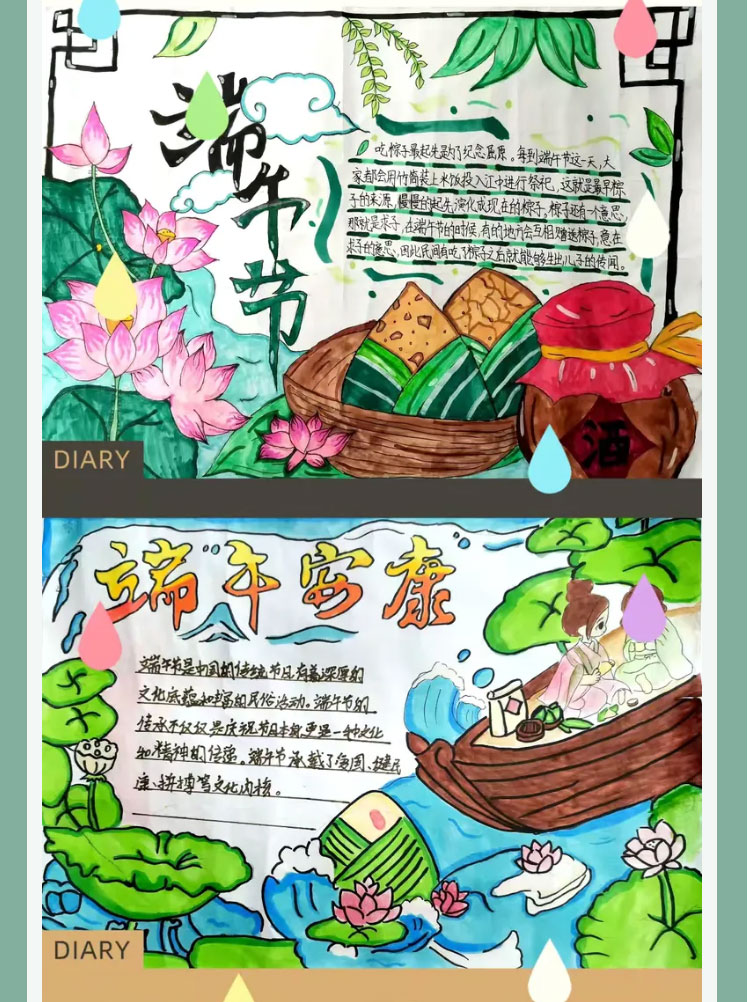 端午节
吃粽子最起先是为了纪念屈原。每到端午节这一天,大
家都会用竹筒装上米饭投入江中进行祭祀,这就是最早粽
子的来源,慢慢的起先演化成现在的粽子,粽子还有一个意思,
那就是求子,在端午节的时候,有的地方会互相赠送粽子,意在
求子的意思,因此民间有吃了粽子之后就能够生出儿子的传闻。
酒
DIARY
端午安康
端午节是中国的传统节日,有着深厚的
文化底蕴和丰富的民俗活动。端午节的
传承不仅仅是庆祝节日本身,更是一种文化
和精神的传递。端午节承载了爱国、健民
康、拼搏等文化内核。
DIARY